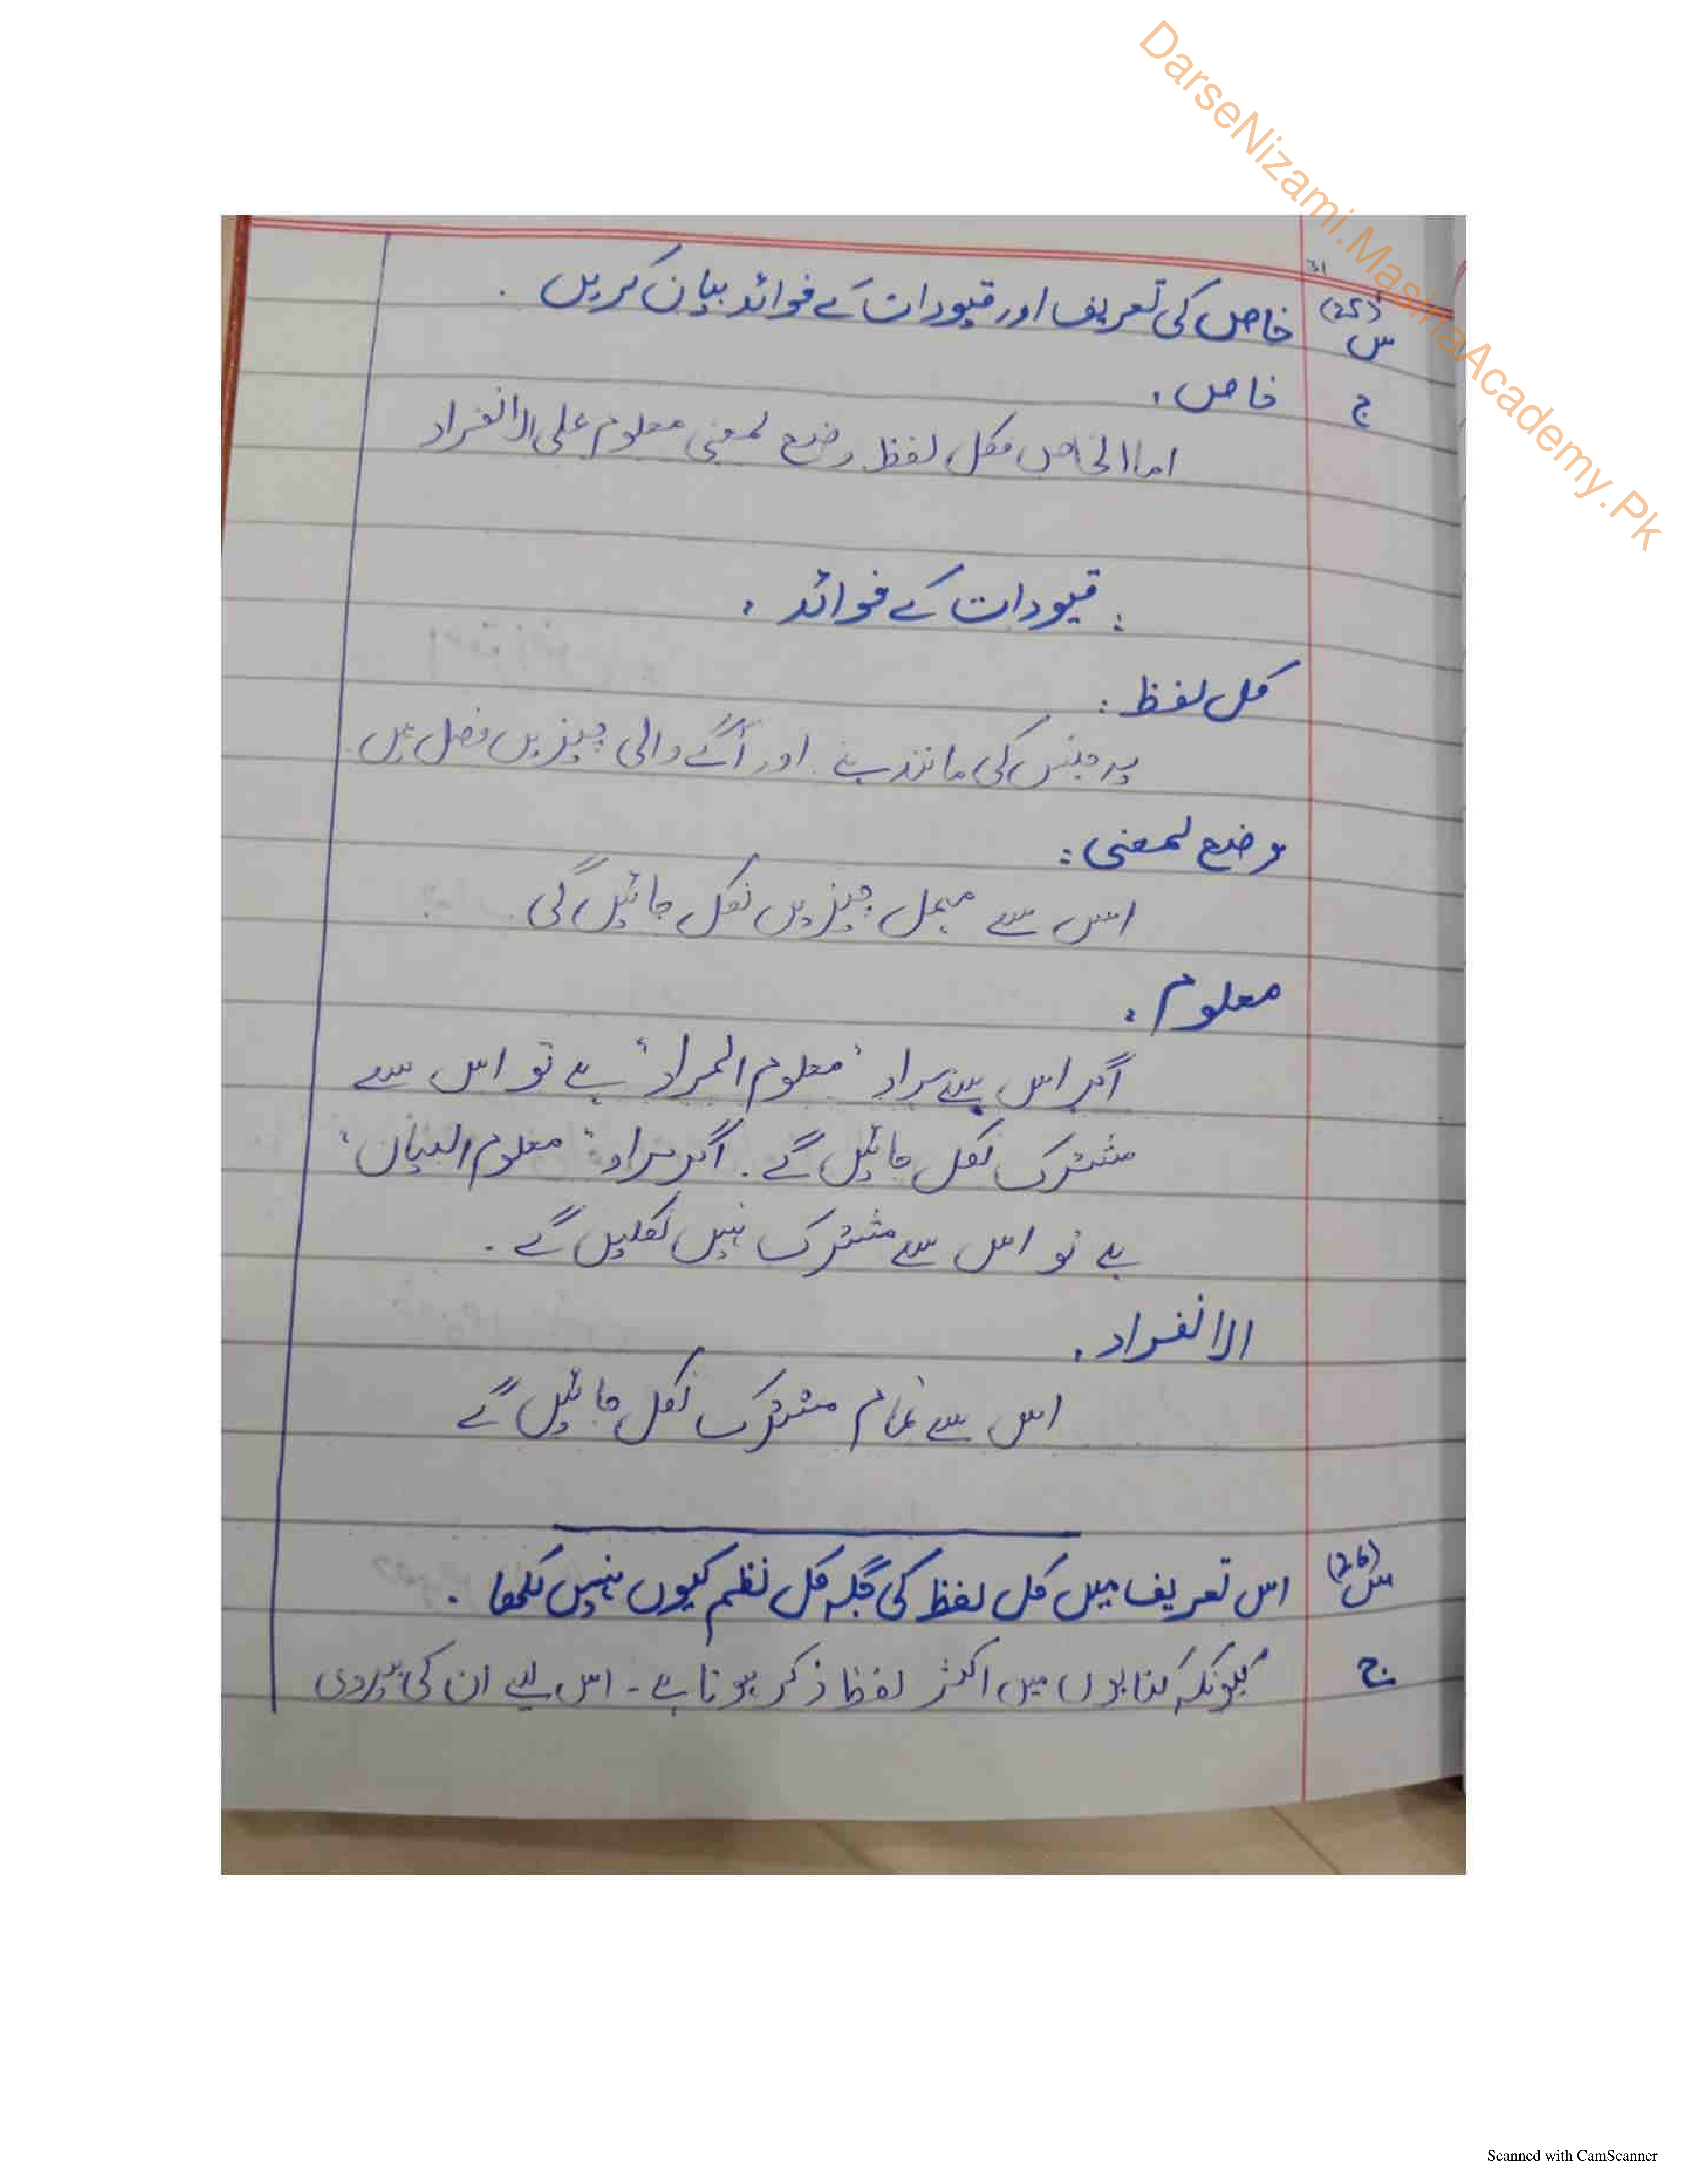 DarseNizami.MasihaAcademy.Pk
31
س (25) خاص کی تعریف اور قیودات کے فوائد بیان کریں ۔
ج خاص :
اما الخاص فکل لفظ وضع لمعنی معلوم علی الانفراد
: قیودات کے فوائد :
کل لفظ :
یہ جنس کی مانند ہے اور آگے والی چیزیں فصل ہیں
وضع لمعنی :
اس سے مہمل چیزیں نکل جائیں گی
معلوم :
اگر اس سے مراد ' معلوم المراد ' ہے تو اس سے
مشترک نکل جائیں گے ۔ اگر مراد ' معلوم البیان '
ہے تو اس سے مشترک نہیں نکلیں گے ۔
الانفراد :
اس سے تمام مشترک نکل جائیں گے
س (26) اس تعریف میں کل لفظ کی جگہ کل نظم کیوں نہیں لکھا ۔
ج کیونکہ کتابوں میں اکثر لفظ ذکر ہوتا ہے ۔ اس لیے ان کی پیروی
Scanned with CamScanner